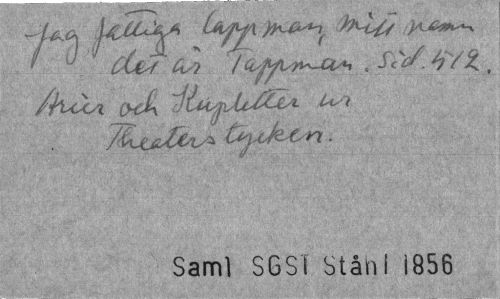 Jag fattiga lappman, mitt namn
det är Tappman. Sid. 512.
Arier och Kupletter ur
Theaterstycken.
Saml SGS1 Ståhl 1856